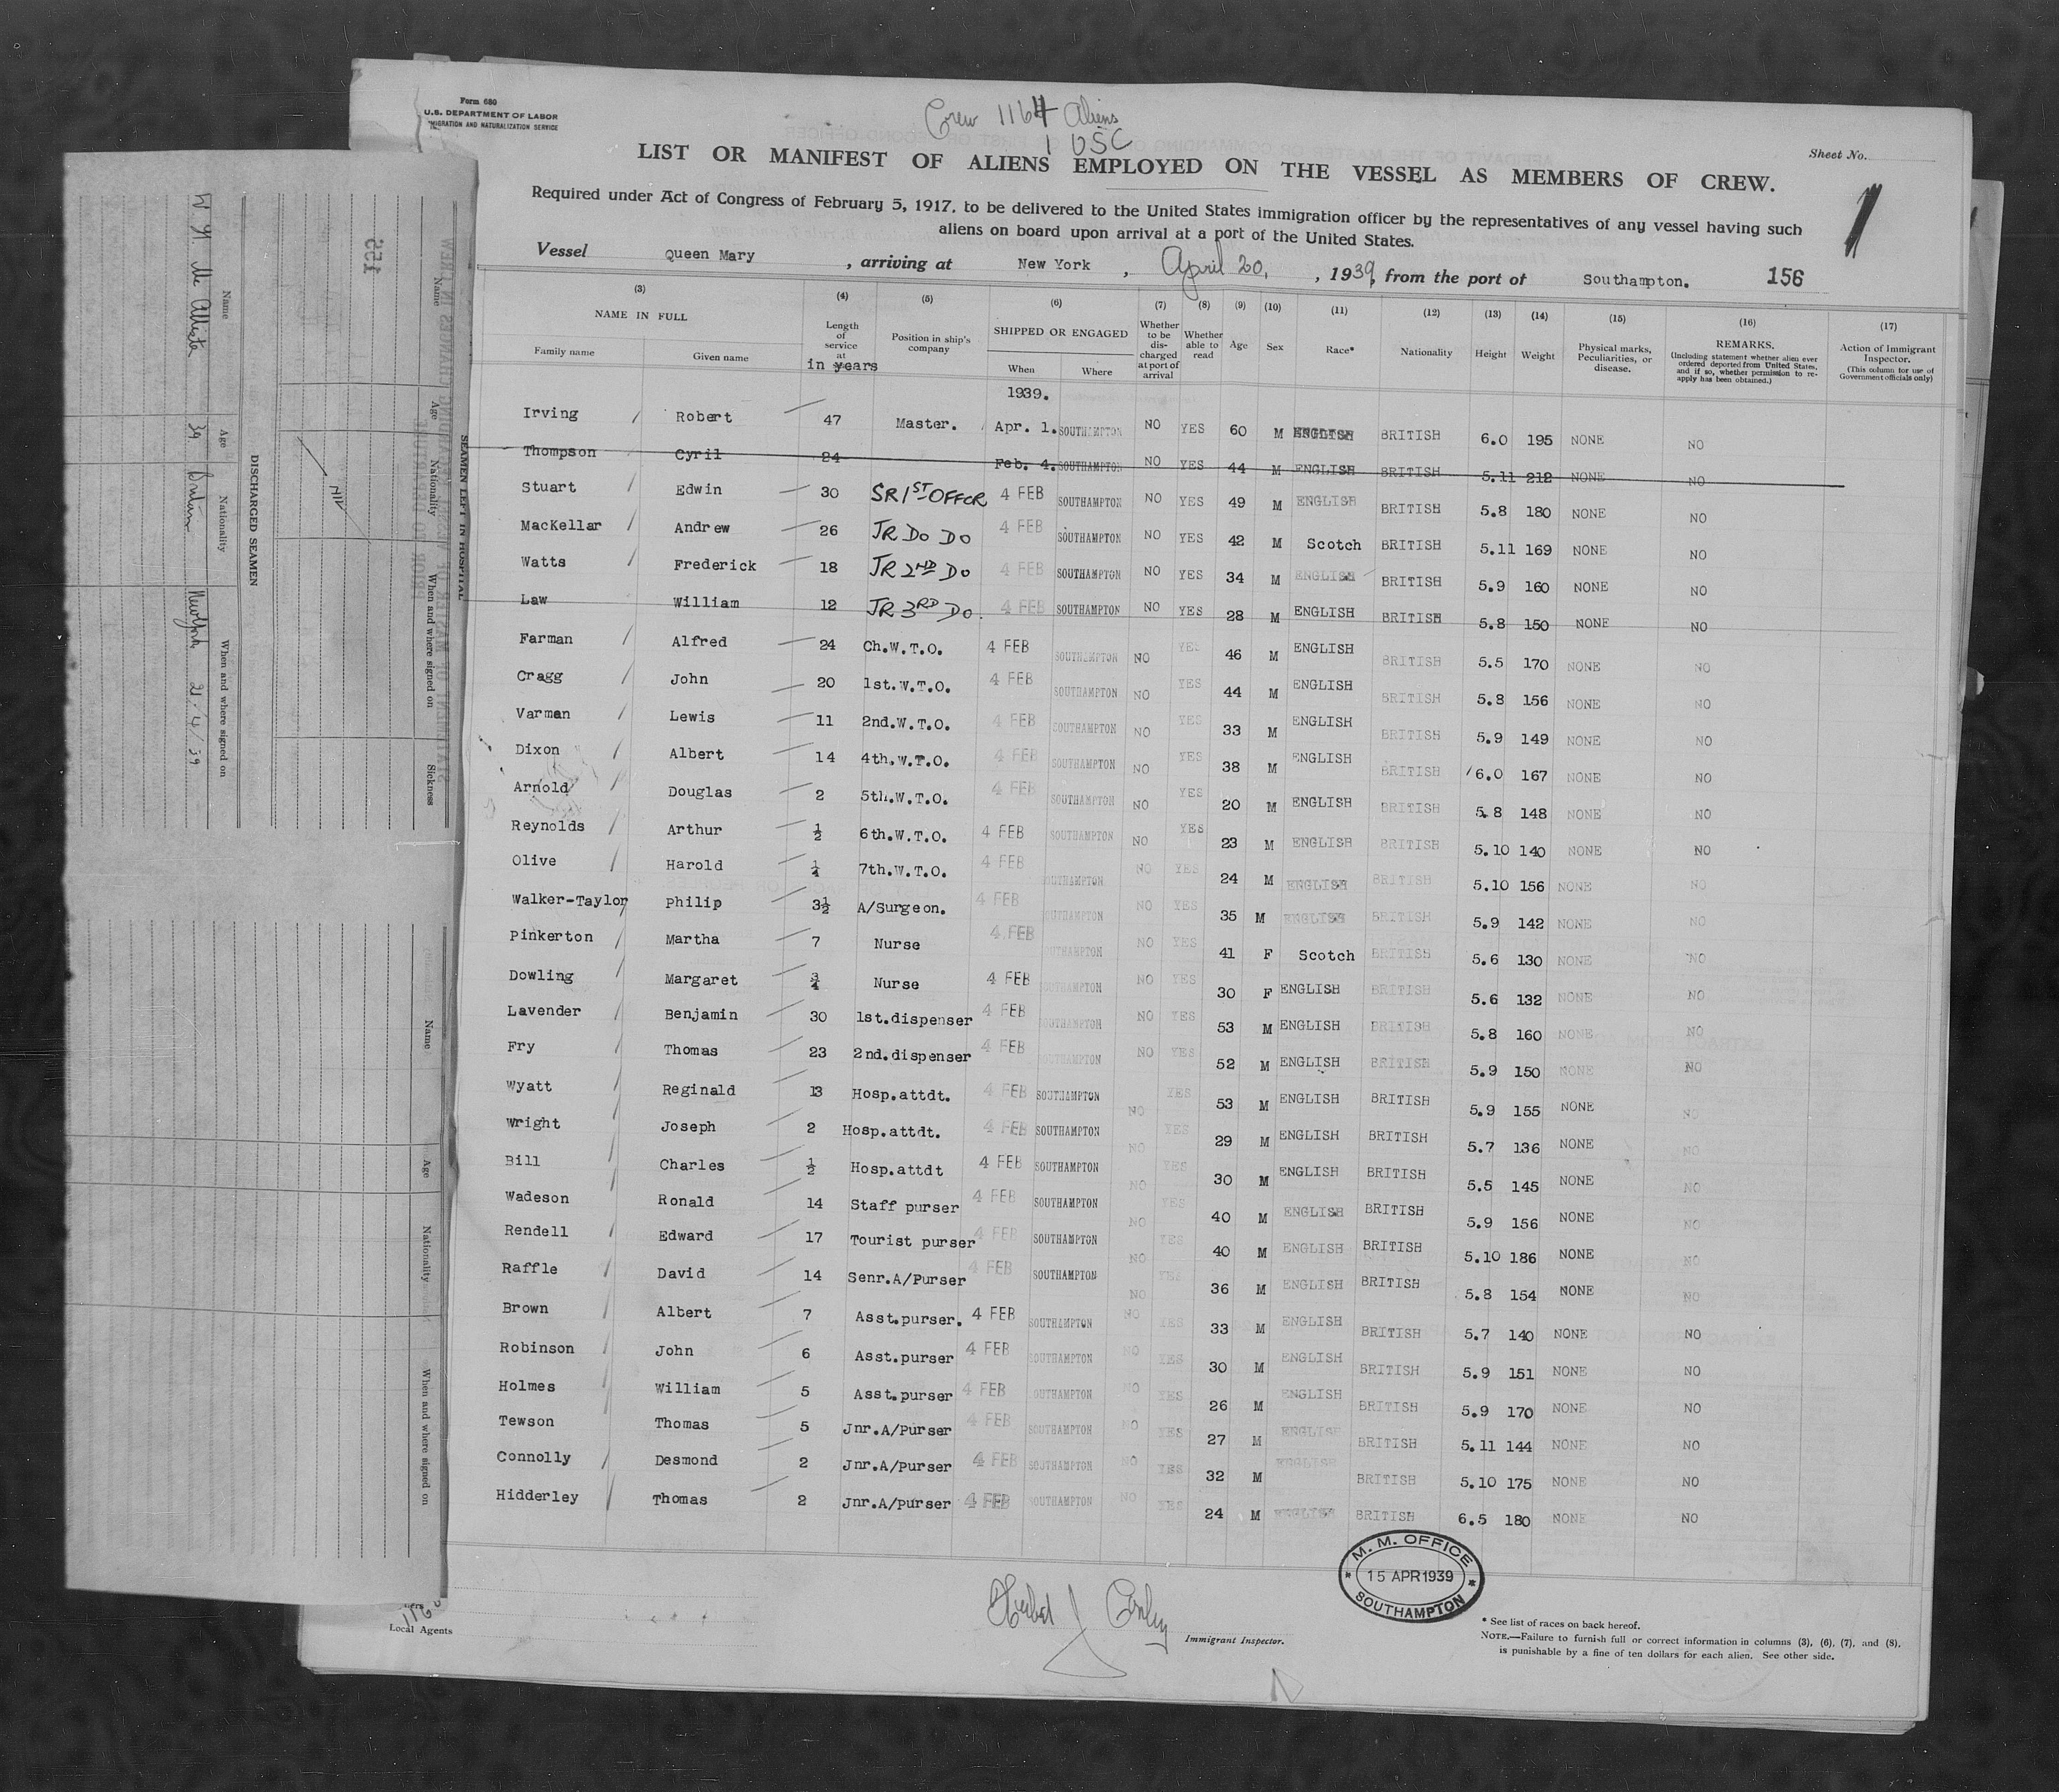 Form 680
U.S. DEPARTMENT OF LABOR
IMMIGRATION AND NATURALIZATION SERVICE
Crew 1164 Aliens
1 USC
Sheet No.
LIST OR MANIFEST OF ALIENS EMPLOYED ON THE VESSEL AS MEMBERS OF CREW.
1
Required under Act of Congress of February 5, 1917, to be delivered to the United States immigration officer by the representatives of any vessel having such
aliens on board upon arrival at a port of the United States.
Vessel Queen Mary , arriving at New York , April 20, , 1939, from the port of Southampton. 156
(3) (4) (5) (6) (7) (8) (9) (10) (11) (12) (13) (14) (15) (16) (17)
NAME IN FULL Family name Given name
Length of service at in years
Position in ship's company
SHIPPED OR ENGAGED When Where
Whether to be discharged at port of arrival
Whether able to read
Age Sex Race* Nationality Height Weight
Physical marks, Peculiarities, or disease.
REMARKS. (Including statement whether alien ever ordered deported from United States, and if so, whether permission to re-apply has been obtained.)
Action of Immigrant Inspector. (This column for use of Government officials only)
1939.
Irving Robert 47 Master. Apr. 1. SOUTHAMPTON NO YES 60 M ENGLISH BRITISH 6.0 195 NONE NO
Thompson Cyril 24 Feb. 4. SOUTHAMPTON NO YES 44 M ENGLISH BRITISH 5.11 212 NONE NO
Stuart Edwin 30 SR 1ST OFFCR 4 FEB SOUTHAMPTON NO YES 49 M ENGLISH BRITISH 5.8 180 NONE NO
MacKellar Andrew 26 JR DO DO 4 FEB SOUTHAMPTON NO YES 42 M Scotch BRITISH 5.11 169 NONE NO
Watts Frederick 18 JR 2ND DO 4 FEB SOUTHAMPTON NO YES 34 M ENGLISH BRITISH 5.9 160 NONE NO
Law William 12 JR 3RD DO. 4 FEB SOUTHAMPTON NO YES 28 M ENGLISH BRITISH 5.8 150 NONE NO
Farman Alfred 24 Ch.W.T.O. 4 FEB SOUTHAMPTON NO YES 46 M ENGLISH BRITISH 5.5 170 NONE NO
Cragg John 20 1st.W.T.O. 4 FEB SOUTHAMPTON NO YES 44 M ENGLISH BRITISH 5.8 156 NONE NO
Varman Lewis 11 2nd.W.T.O. 4 FEB SOUTHAMPTON NO YES 33 M ENGLISH BRITISH 5.9 149 NONE NO
Dixon Albert 14 4th.W.T.O. 4 FEB SOUTHAMPTON NO YES 38 M ENGLISH BRITISH 6.0 167 NONE NO
Arnold Douglas 2 5th.W.T.O. 4 FEB SOUTHAMPTON NO YES 20 M ENGLISH BRITISH 5.8 148 NONE NO
Reynolds Arthur ½ 6th.W.T.O. 4 FEB SOUTHAMPTON NO YES 23 M ENGLISH BRITISH 5.10 140 NONE NO
Olive Harold ¼ 7th.W.T.O. 4 FEB SOUTHAMPTON NO YES 24 M ENGLISH BRITISH 5.10 156 NONE NO
Walker-Taylor Philip 3½ A/Surgeon. 4 FEB SOUTHAMPTON NO YES 35 M ENGLISH BRITISH 5.9 142 NONE NO
Pinkerton Martha 7 Nurse 4 FEB SOUTHAMPTON NO YES 41 F Scotch BRITISH 5.6 130 NONE NO
Dowling Margaret ¾ Nurse 4 FEB SOUTHAMPTON NO YES 30 F ENGLISH BRITISH 5.6 132 NONE NO
Lavender Benjamin 30 1st.dispenser 4 FEB SOUTHAMPTON NO YES 53 M ENGLISH BRITISH 5.8 160 NONE NO
Fry Thomas 23 2nd.dispenser 4 FEB SOUTHAMPTON NO YES 52 M ENGLISH BRITISH 5.9 150 NONE NO
Wyatt Reginald 13 Hosp.attdt. 4 FEB SOUTHAMPTON NO YES 53 M ENGLISH BRITISH 5.9 155 NONE NO
Wright Joseph 2 Hosp.attdt. 4 FEB SOUTHAMPTON NO YES 29 M ENGLISH BRITISH 5.7 136 NONE NO
Bill Charles ½ Hosp.attdt 4 FEB SOUTHAMPTON NO YES 30 M ENGLISH BRITISH 5.5 145 NONE NO
Wadeson Ronald 14 Staff purser 4 FEB SOUTHAMPTON NO YES 40 M ENGLISH BRITISH 5.9 156 NONE NO
Rendell Edward 17 Tourist purser 4 FEB SOUTHAMPTON NO YES 40 M ENGLISH BRITISH 5.10 186 NONE NO
Raffle David 14 Senr.A/Purser 4 FEB SOUTHAMPTON NO YES 36 M ENGLISH BRITISH 5.8 154 NONE NO
Brown Albert 7 Asst.purser. 4 FEB SOUTHAMPTON NO YES 33 M ENGLISH BRITISH 5.7 140 NONE NO
Robinson John 6 Asst.purser 4 FEB SOUTHAMPTON NO YES 30 M ENGLISH BRITISH 5.9 151 NONE NO
Holmes William 5 Asst.purser 4 FEB SOUTHAMPTON NO YES 26 M ENGLISH BRITISH 5.9 170 NONE NO
Tewson Thomas 5 Jnr.A/Purser 4 FEB SOUTHAMPTON NO YES 27 M ENGLISH BRITISH 5.11 144 NONE NO
Connolly Desmond 2 Jnr.A/Purser 4 FEB SOUTHAMPTON NO YES 32 M ENGLISH BRITISH 5.10 175 NONE NO
Hidderley Thomas 2 Jnr.A/Purser 4 FEB SOUTHAMPTON NO YES 24 M ENGLISH BRITISH 6.5 180 NONE NO
M. M. OFFICE
15 APR 1939
SOUTHAMPTON
Immigrant Inspector.
* See list of races on back hereof.
NOTE.—Failure to furnish full or correct information in columns (3), (6), (7), and (8),
is punishable by a fine of ten dollars for each alien. See other side.
Local Agents
SEAMEN LEFT IN HOSPITAL
Name Age Nationality When and where signed on Sickness
155
NIL
DISCHARGED SEAMEN
Name Age Nationality When and where signed on
39
Name Age Nationality When and where signed on